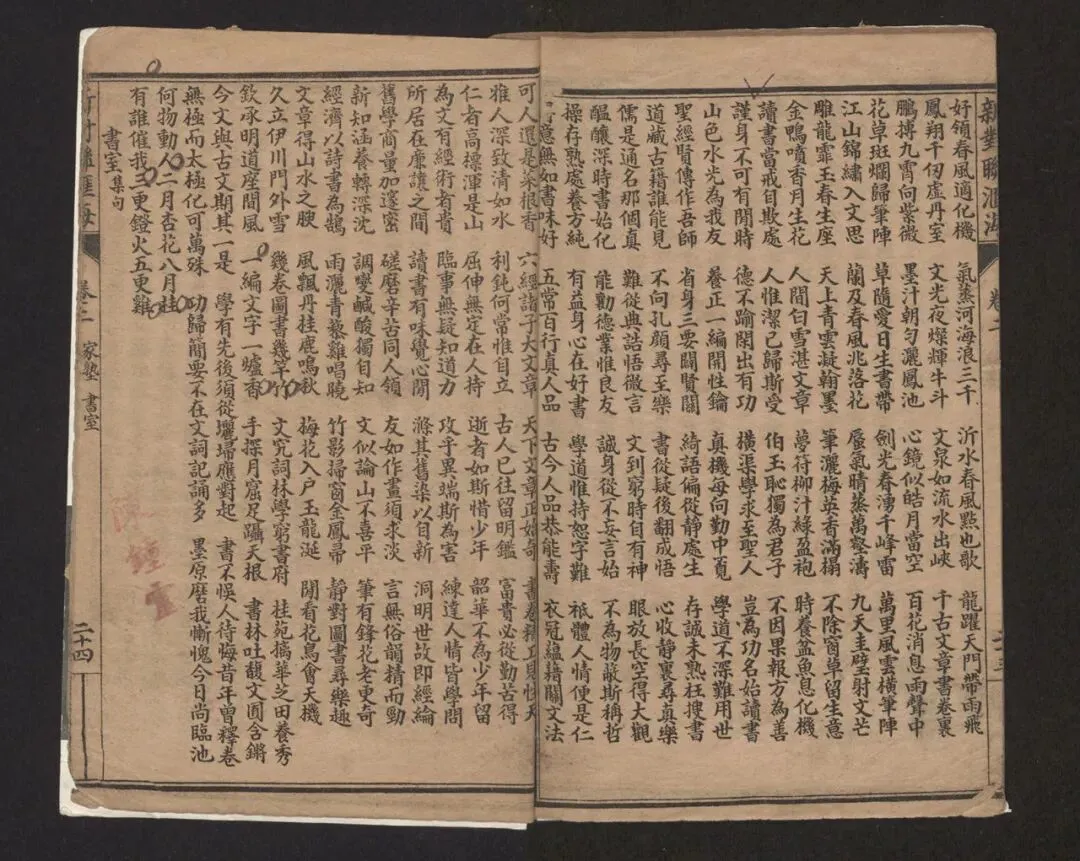 新對聯滙海 卷二
好領春風適化機 氣蒸河海浪三千 沂水春風點也歌 龍躍天門帶雨飛
鳳翔千仞虛丹室 文光夜燦輝牛斗 文泉如流水出峽 千古文章書卷裏
鵬摶九霄向紫微 墨汁朝勻灑鳳池 心鏡似皓月當空 百花消息雨聲中
花草斑斕歸筆陣 草隨愛日生書帶 劍光春湧千峰雷 萬里風雲橫筆陣
江山錦繡入文思 蘭及春風兆落花 蜃氣晴蒸萬壑濤 九天圭璧射文芒
雕龍霏玉春生座 天上青雲凝翰墨 筆灑梅英香滿榻 不除窗草留生意
金鴨噴香月生花 人間白雪湛文章 夢符柳汁綠盈袍 時養盆魚息化機
讀書當戒自欺處 人惟潔己歸斯受 伯玉恥獨為君子 不因果報方為善
謹身不可有閒時 德不踰閑出有功 橫渠學求至聖人 豈為功名始讀書
山色水光為我友 養正一編開性鑰 真機每向勤中覓 學道不深難用世
聖經賢傳作吾師 省身三要闢賢關 綺語偏從靜處生 存誠未熟枉搜書
道藏古籍誰能見 不向孔顏尋至樂 書從疑後翻成悟 心收靜裏尋真樂
儒是通名那個真 難從典誥悟微言 文到窮時自有神 眼放長空得大觀
醞釀深時書始化 能勸德業惟良友 誠身從不妄言始 不為物蔽斯稱哲
操存熟處養方純 有益身心在好書 學道惟持恕字難 祗體人情便是仁
意無如書味好 五常百行真人品 古今人品恭能壽 衣冠蘊藉關文法
可人還是菜根香 六經諸子大文章 天下文章正始奇 書卷精工見性天
雅人深致清如水 利鈍何常惟自立 古人已往留明鑑 富貴必從勤苦得
仁者高標渾是山 屈伸無定在人持 逝者如斯惜少年 韶華不為少年留
為文有經術者貴 臨事無疑知道力 攻乎異端斯為害 練達人情皆學問
所居在廉讓之間 讀書有味覺心閒 滌其舊染以自新 洞明世故即經綸
舊學商量加邃密 磋磨辛苦同人領 友如作畫須求淡 言無俗韻精而勁
新知涵養轉深沈 調變鹹酸獨自知 文似論山不喜平 筆有鋒花老更奇
經濟以詩書為鵠 雨灑青藜雞唱曉 竹影掃窗金鳳帚 靜對圖書尋樂趣
文章得山水之腴 風飄丹桂鹿鳴秋 梅花入戶玉龍涎 閒看花鳥會天機
久立伊川門外雪 幾卷圖書幾竿竹 文究詞林學窮書府 桂苑摛華芝田養秀
欽承明道座間風 一編文字一爐香 手探月窟足躡天根 書林吐馥文囿含鏘
今文與古文期其一是 學有先後須從壇埽應對起 書不悞人待悔昔年曾釋卷
無極而太極化可萬殊 功歸簡要不在文詞記誦多 墨原磨我慚愧今日尚臨池
何物動人二月杏花八月桂
有誰催我三更鐙火五更雞
書室集句
卷二 家塾 書室 二十四
鍾